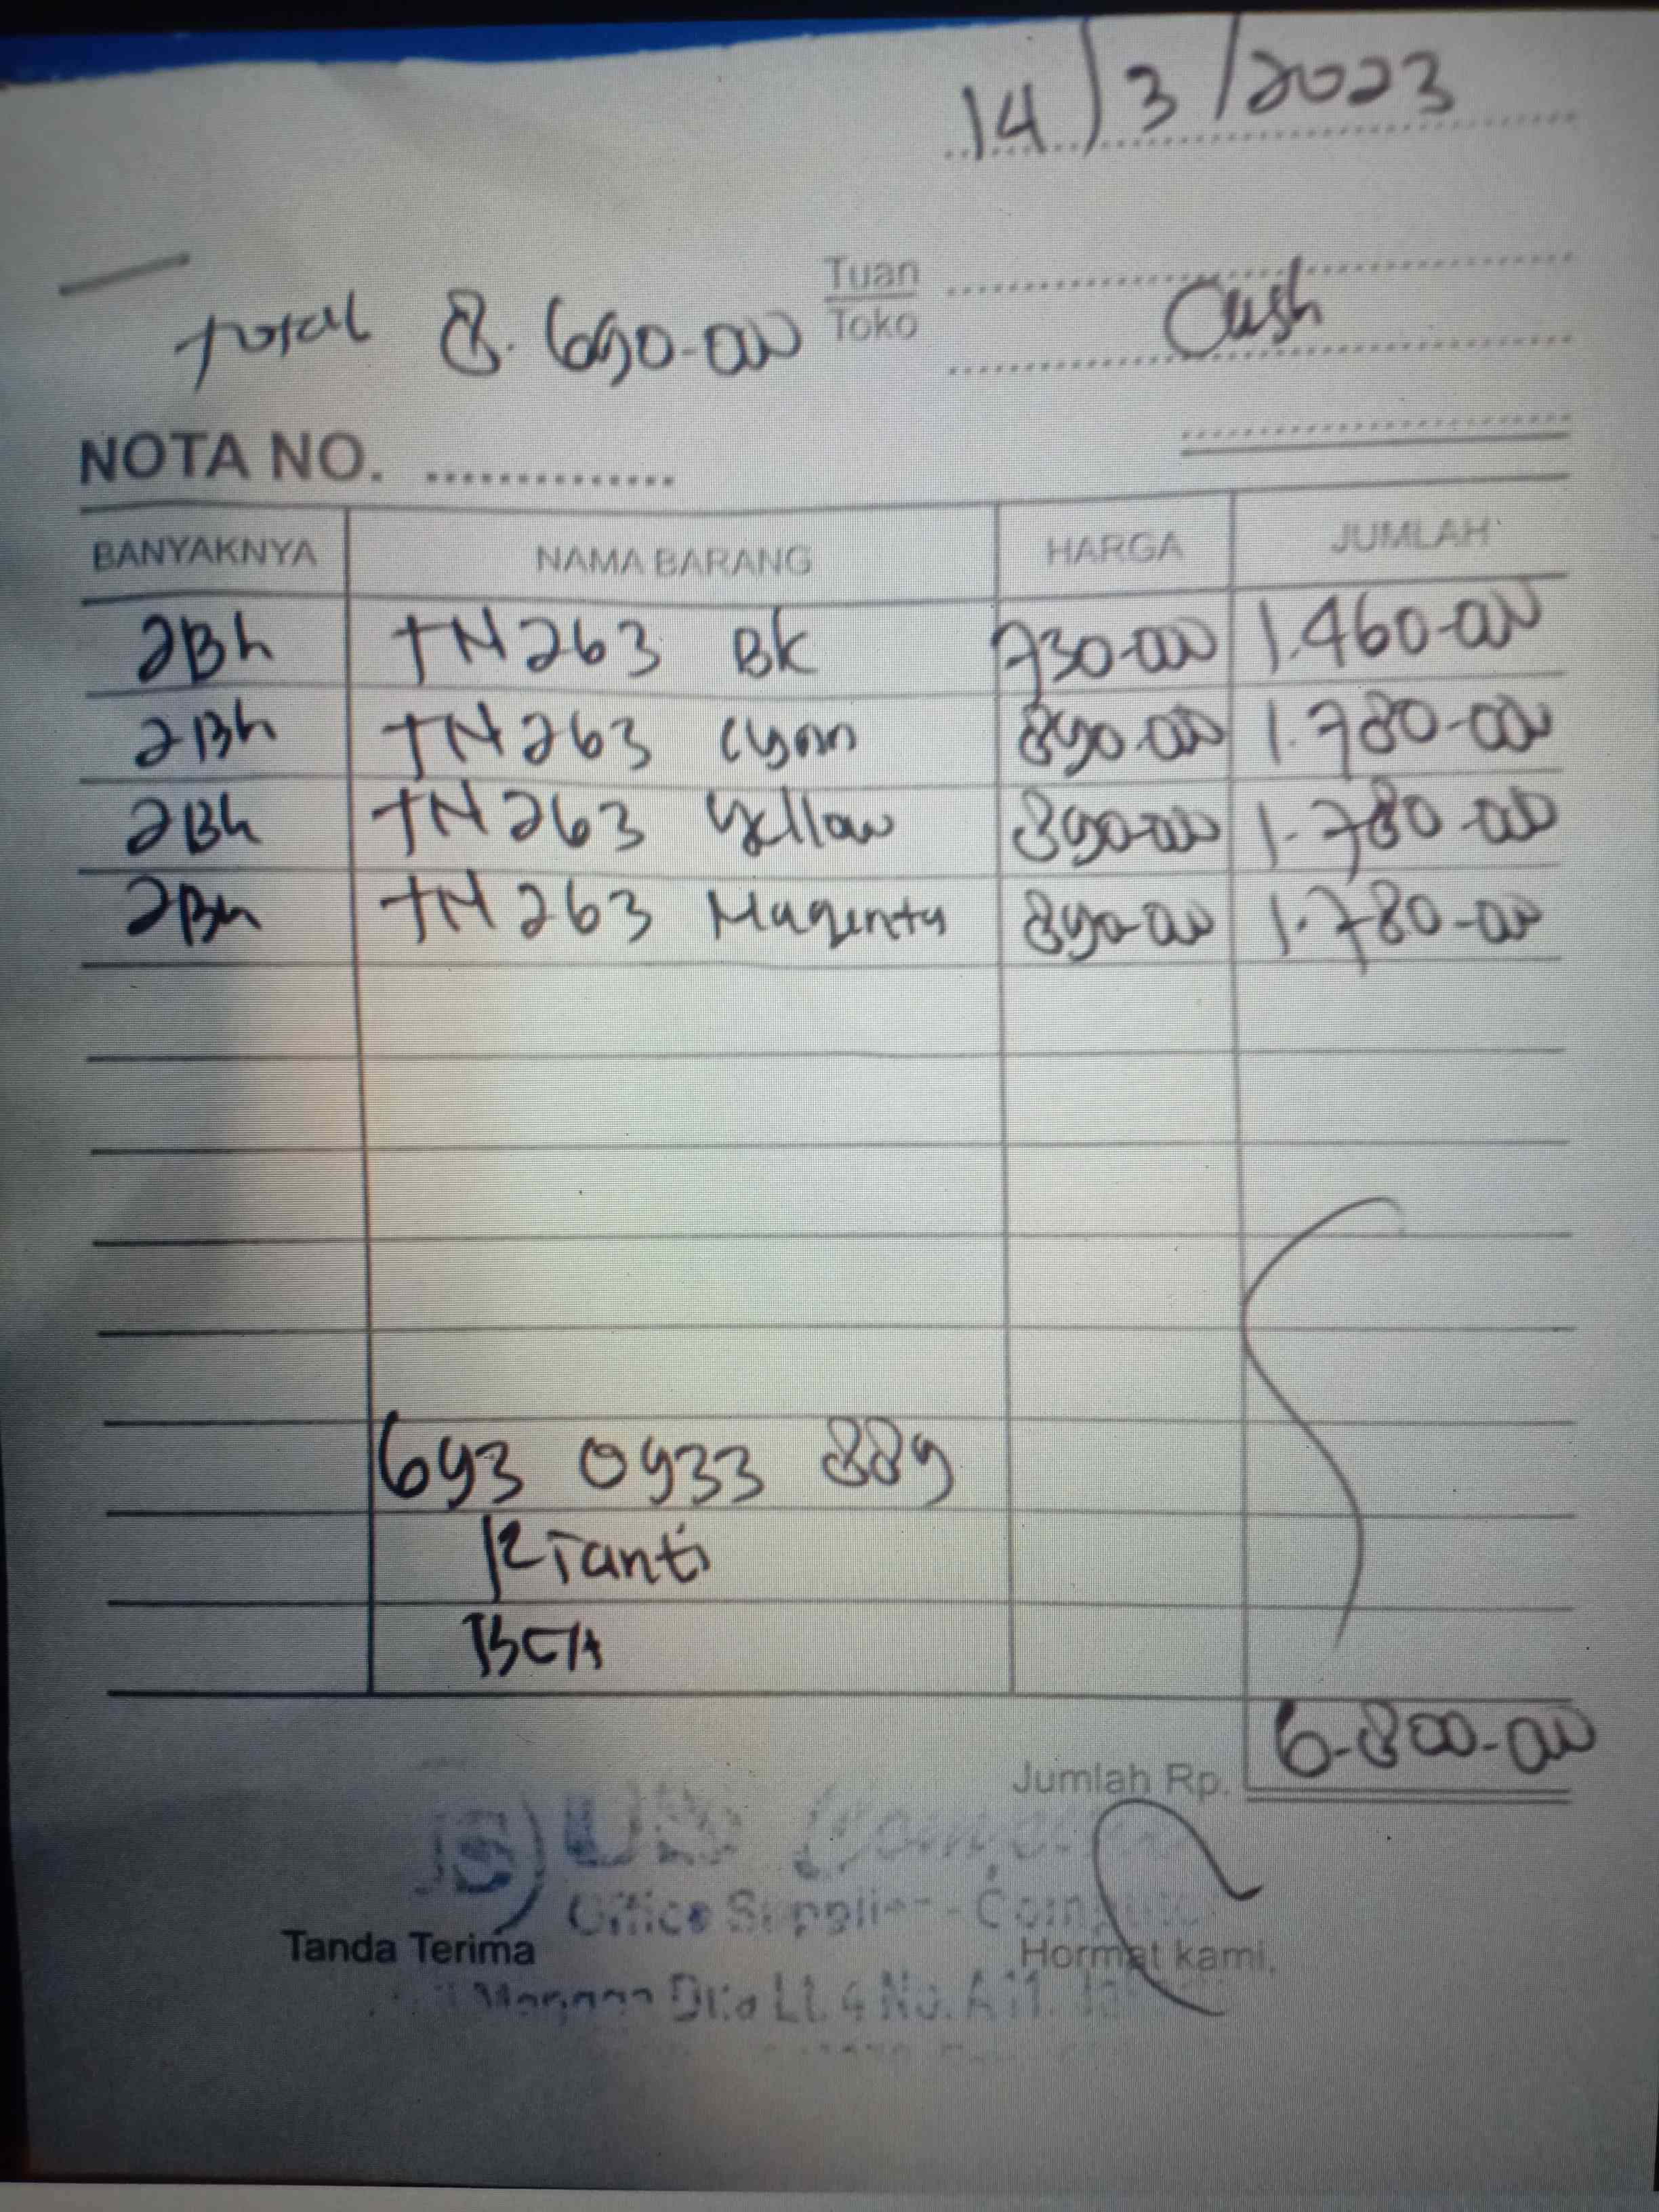 14/3/2023
Tuan
Toko
total 8.690.000
Cash
NOTA NO. ..............
BANYAKNYA NAMA BARANG HARGA JUMLAH
2Bh TN 263 BK 730.000 1.460.000
2Bh TN 263 Cyan 890.000 1.780.000
2Bh TN 263 Yellow 890.000 1.780.000
2Bh TN 263 Magenta 890.000 1.780.000
693 0933 889
Rianti
BCA
Jumlah Rp. 6.800.000
Office Supplies - Computer
Tanda Terima Hormat kami,
Mangga Dua Lt. 4 No. A